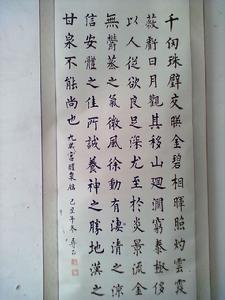 千仞珠壁交映金碧相暉照灼雲霞
蔽虧日月觀其移山迴澗窮泰極侈
以人從欲良足深尤至於炎景流金
無鬱蒸之氣微風徐動有淒清之涼
信安體之佳所誠養神之勝地漢之
甘泉不能尚也 九成宮醴泉銘 己丑年冬